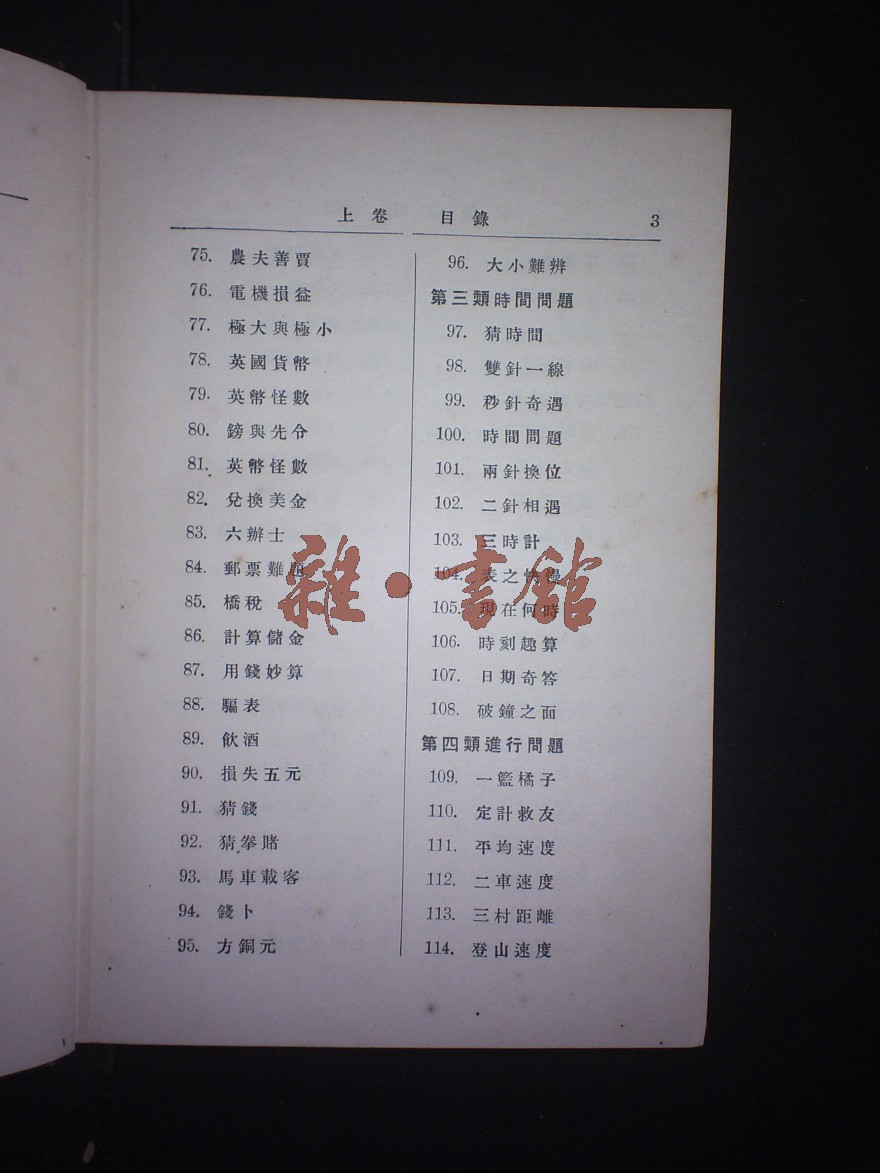 上卷 目錄 3
75. 農夫善賈
76. 電機損益
77. 極大與極小
78. 英國貨幣
79. 英幣怪數
80. 鎊與先令
81. 英幣怪數
82. 兌換美金
83. 六辦士
84. 郵票難題
85. 橋稅
86. 計算儲金
87. 用錢妙算
88. 騙表
89. 飲酒
90. 損失五元
91. 猜錢
92. 猜拳賭
93. 馬車載客
94. 錢卜
95. 方銅元
96. 大小難辨
第三類時間問題
97. 猜時間
98. 雙針一線
99. 秒針奇遇
100. 時間問題
101. 兩針換位
102. 二針相遇
103. 三時計
104. 表之快慢
105. 現在何時
106. 時刻趣算
107. 日期奇答
108. 破鐘之面
第四類進行問題
109. 一籃橘子
110. 定計救友
111. 平均速度
112. 二車速度
113. 三村距離
114. 登山速度
雜·書館